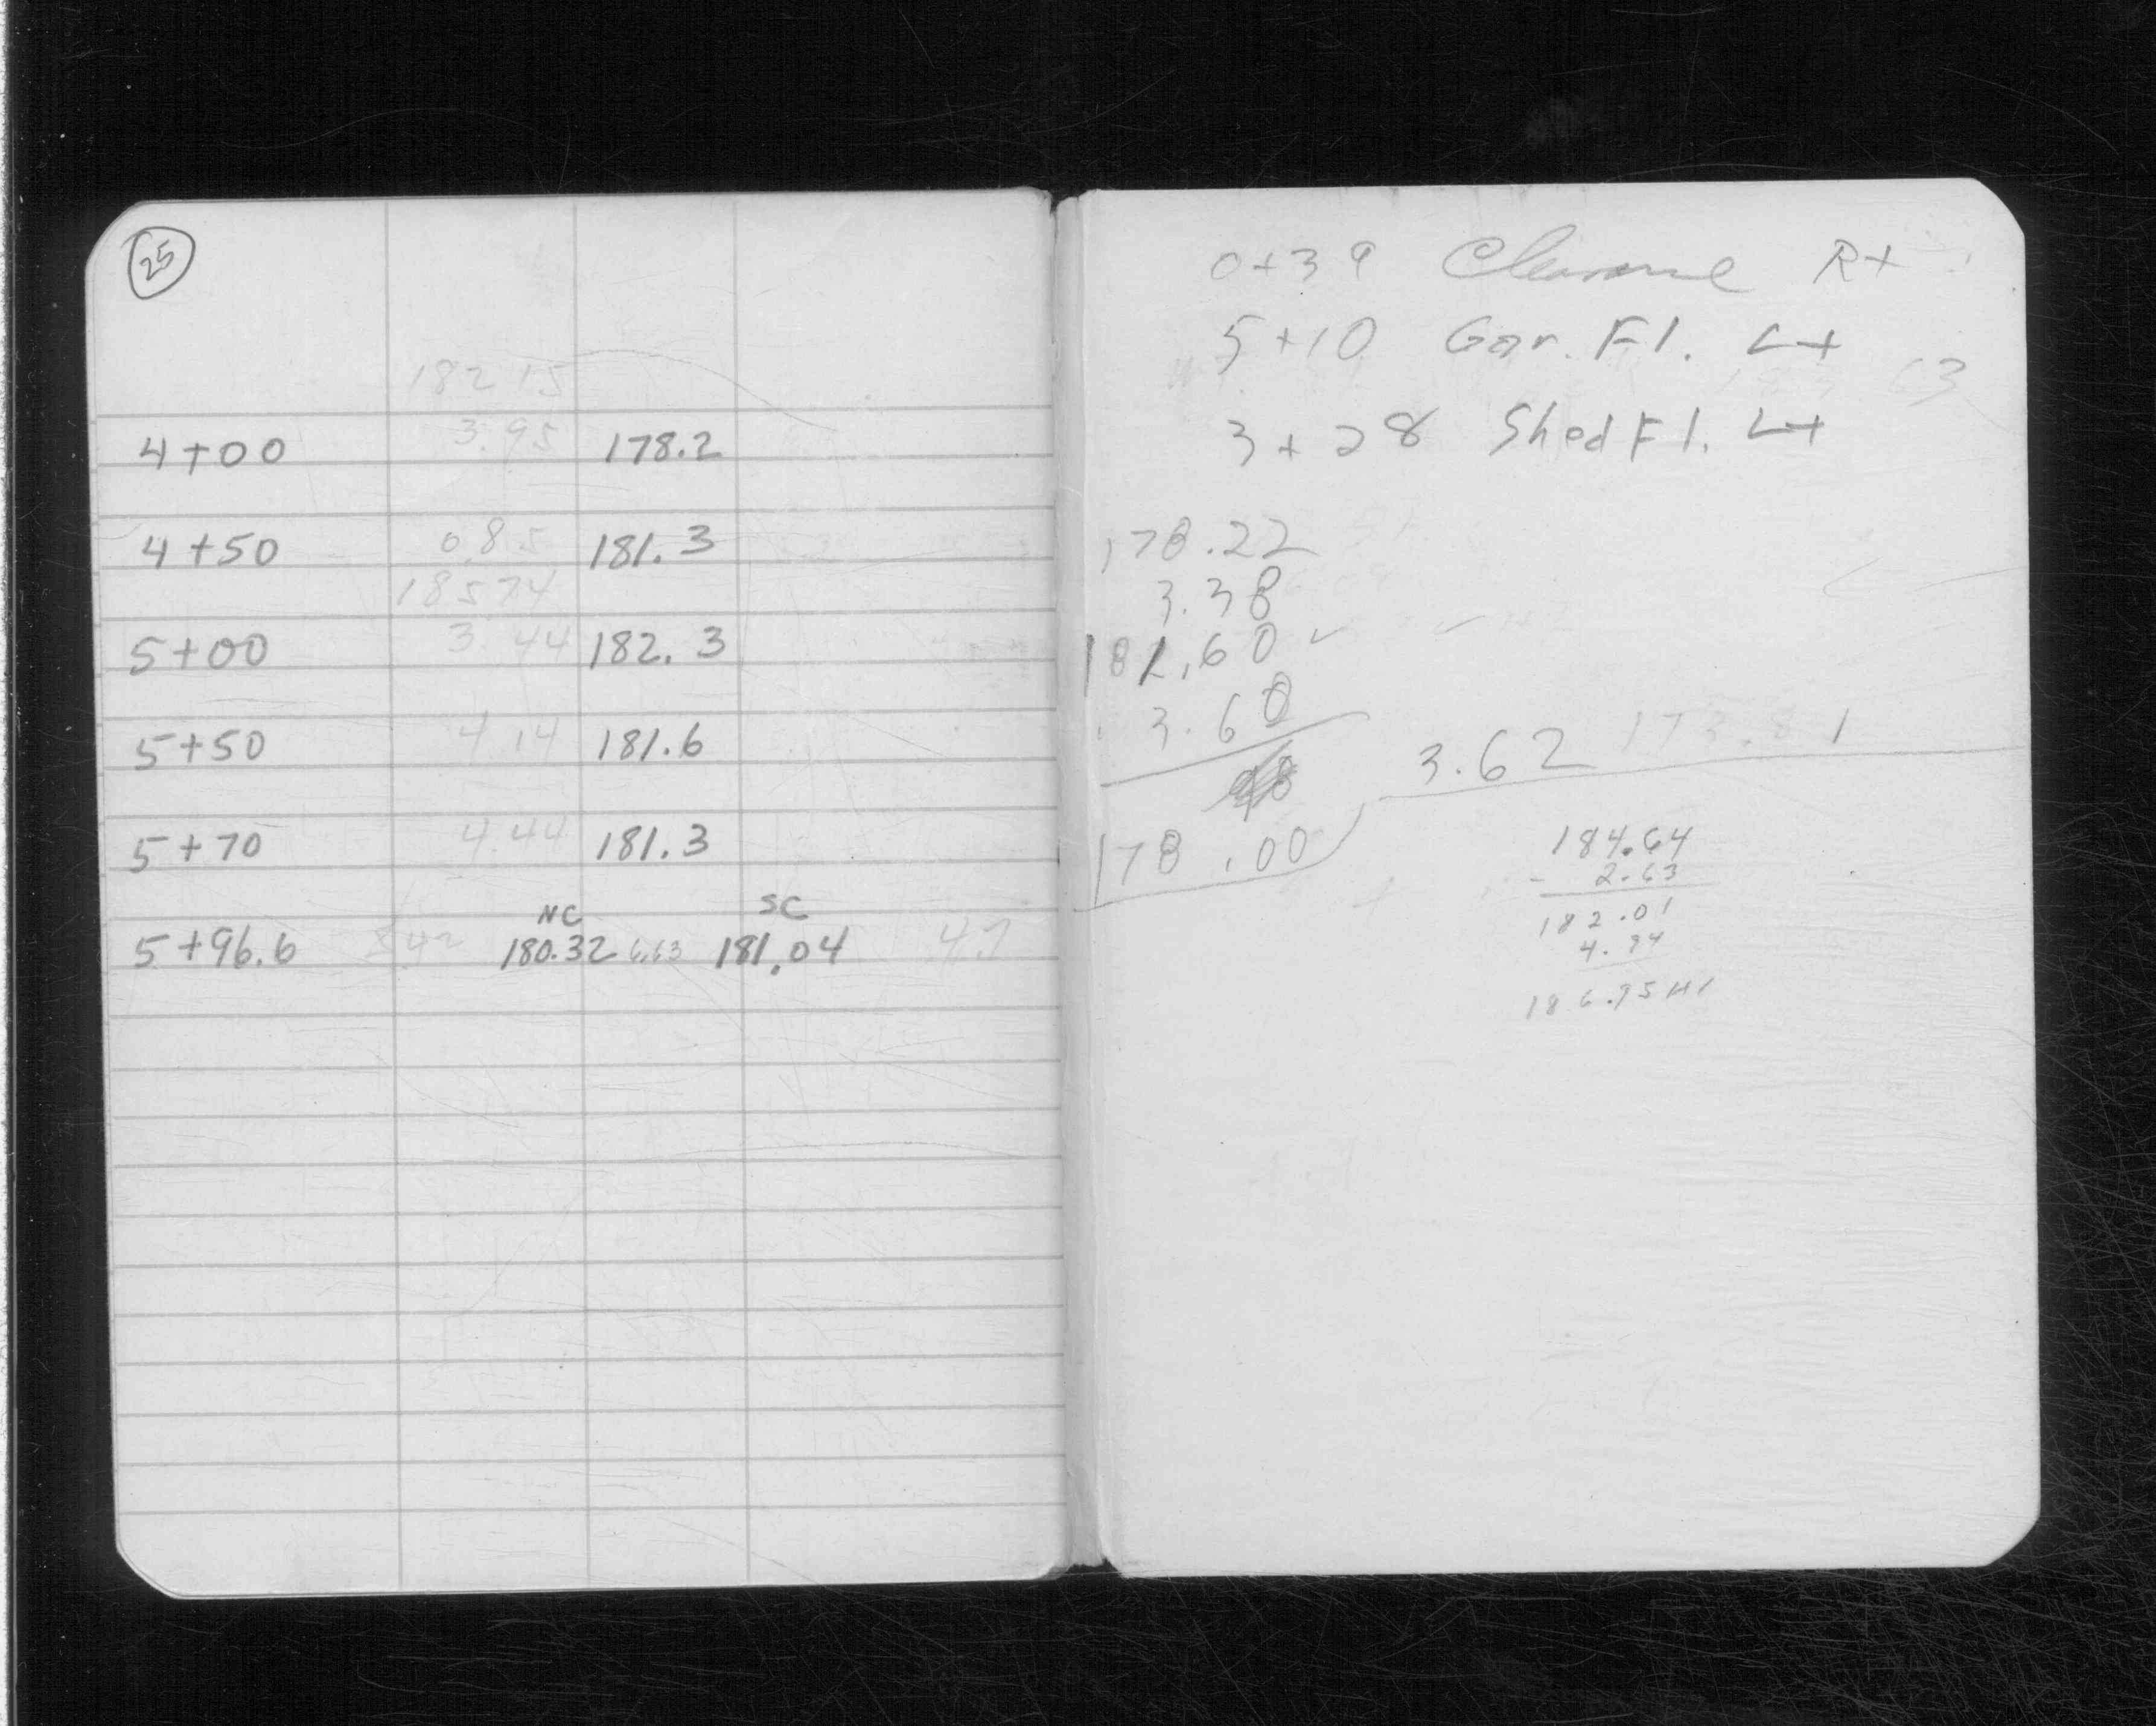 25
182 15
4+00 3.95 178.2
4+50 0.85 181.3
185 74
5+00 3.44 182.3
5+50 4.14 181.6
5+70 4.44 181.3
NC SC
5+96.6 5.42 180.32 6.63 181.04 4.7
0+39 Rt
5+10 Gar. Fl. Lt
63
3+28 Shed Fl. Lt
178.22
3.38
181.60 ✓
3.60
178.00
3.62 173.81
184.64
- 2.63
182.01
4.94
186.95 HI